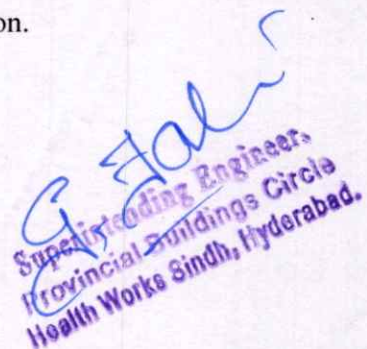 on.
Superintending Engineer,
Provincial Buildings Circle
Health Works Sindh, Hyderabad.